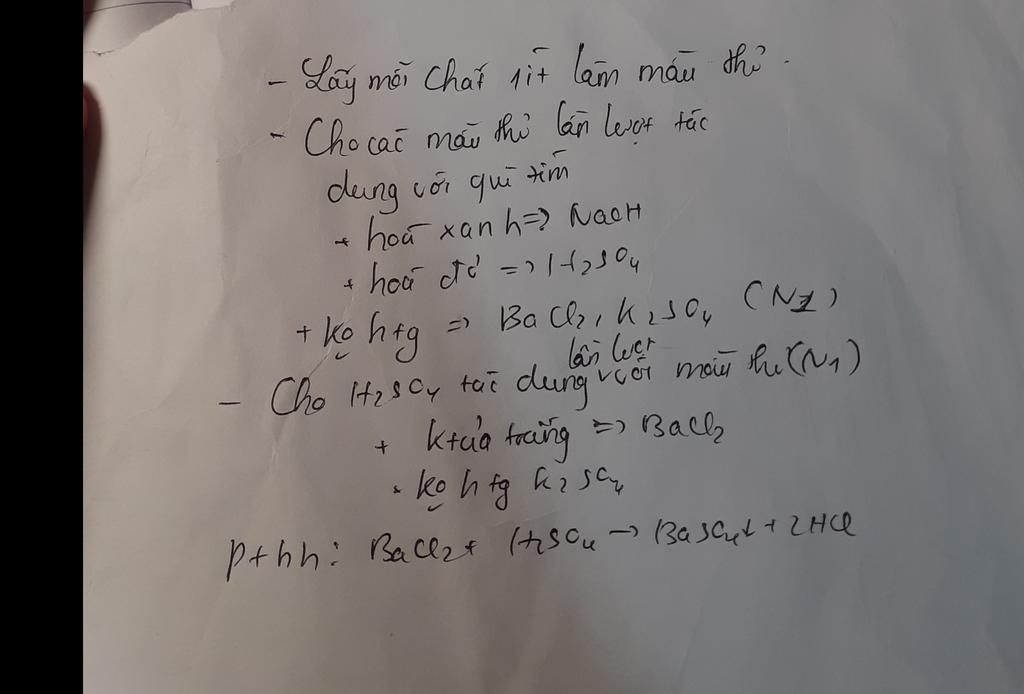 - Lấy mỗi chất 1 ít làm mẫu thử.
- Cho các mẫu thử lần lượt tác
dụng với quì tím
+ hoá xanh => NaOH
+ hoá đỏ => H2SO4
+ ko htg => BaCl2, K2SO4 (N1)
lần lượt
- Cho H2SO4 tác dụng với mẫu thử (N1)
+ ktủa trắng => BaCl2
+ ko htg K2SO4
pthh: BaCl2 + H2SO4 → BaSO4↓ + 2HCl